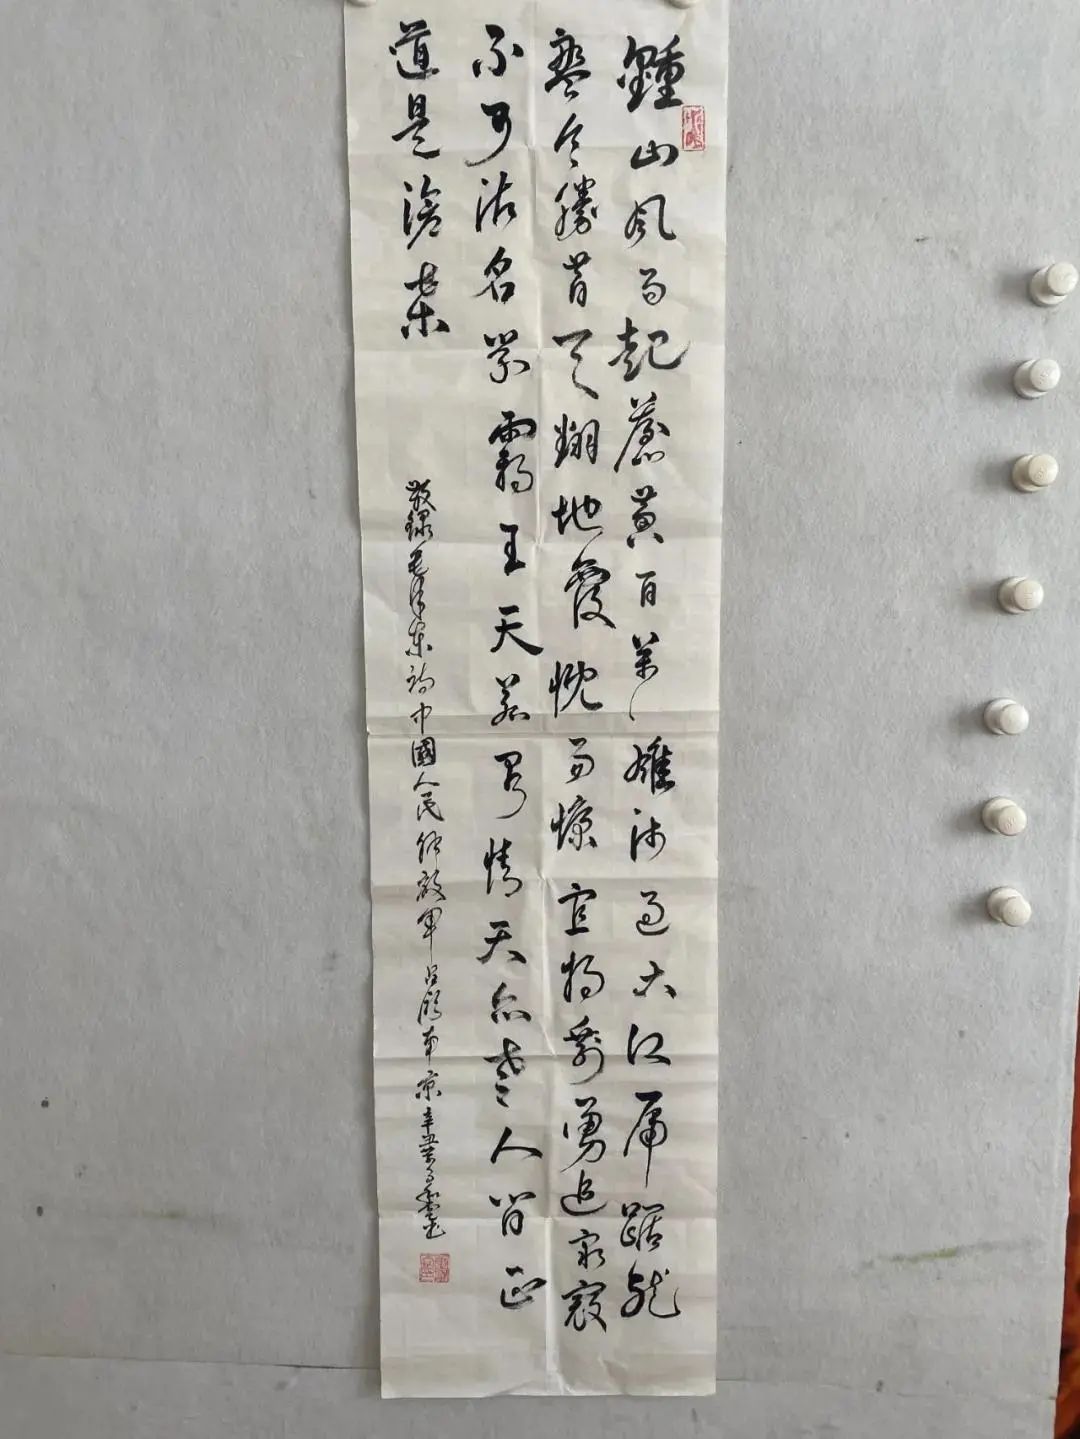 鍾山风雨起蒼黄百萬雄师过大江虎踞龍
盤今勝昔天翻地覆慨而慷宜将剩勇追窮寇
不可沽名学霸王天若有情天亦老人间正
道是滄桑
敬録毛泽东詩中國人民解放軍占领南京辛丑